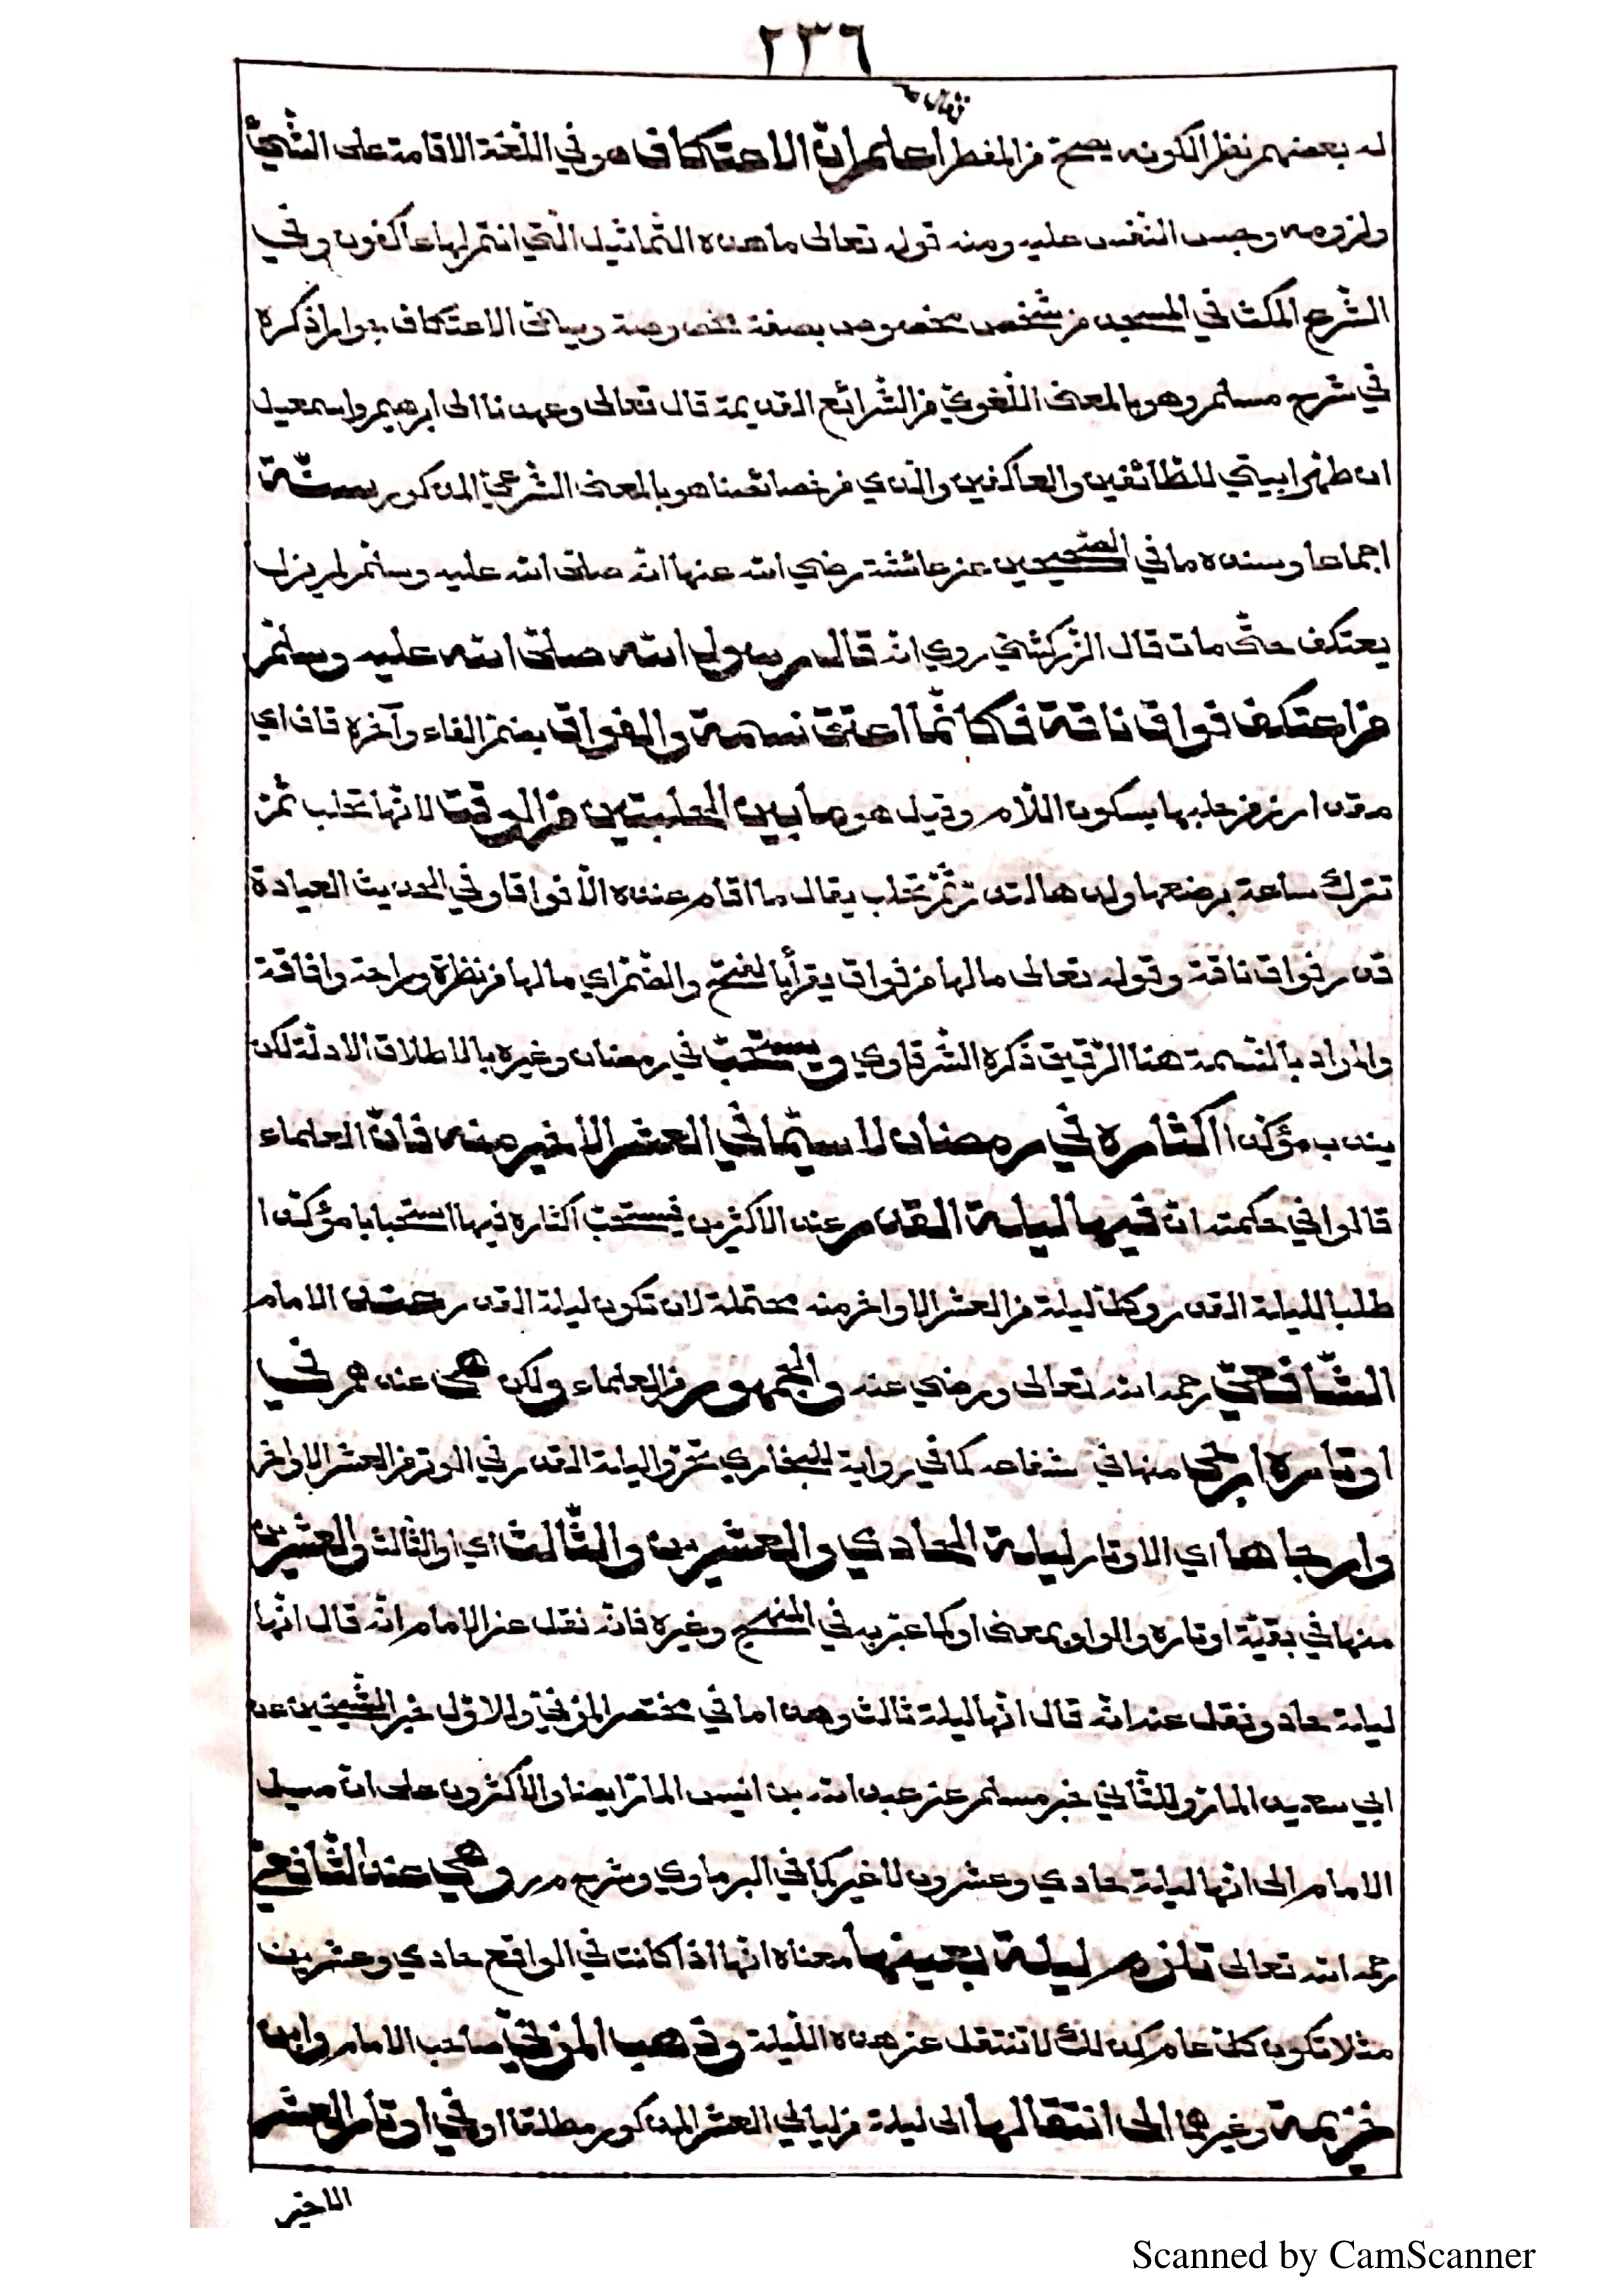 ٢٣٦
له بعضهم نظرا لكونه يصح من المفطر اعلم ان الاعتكاف هو في اللغة الاقامة على الشيء
ولزومه وحبس النفس عليه ومنه قوله تعالى ما هذه التماثيل التي انتم لها عاكفون وفي
الشرع المكث في المسجد من شخص مخصوص بصفة مخصوصة ويسمى الاعتكاف جوارا ذكره
في شرح مسلم وهو بالمعنى اللغوي من الشرائع القديمة قال تعالى وعهدنا الى ابرهيم واسمعيل
ان طهرا بيتي للطائفين والعاكفين والذي من خصائصنا هو بالمعنى الشرعي المذكور سنّة
اجماعا وسنده ما في الصحيحين عن عائشة رضي الله عنها انه صلى الله عليه وسلم لم يزل
يعتكف حتى مات قال الزركشي روي انه قال رسول الله صلى الله عليه وسلم
من اعتكف فواق ناقة فكانما اعتق نسمة والفواق بضم الفاء وآخره قاف اي
مقدار زمن حلبها بسكون اللام وقيل هو ما بين الحلبتين من الوقت لانها تحلب ثم
تترك ساعة يرضعها ولدها لتدر ثم تحلب يقال ما اقام عنده الا فواقا وفي الحديث العيادة
قدر فواق ناقة وقوله تعالى ما لها من فواق يقرأ بالفتح والضم اي ما لها من نظرة وراحة وافاقة
والمراد بالنسمة هنا الرقيق ذكره الشرقاوي ويستحب في رمضان وغيره بالاطلاق الادلة لكن
يندب مؤكدا اكثاره في رمضان لا سيما في العشر الاخير منه فان العلماء
قالوا في حكمته ان فيها ليلة القدر عند الاكثرين فيستحب اكثاره فيها استحبابا مؤكدا
طلبا لليلة القدر وكل ليلة من العشر الاواخر منه محتملة لان تكون ليلة القدر عند الامام
الشافعي رحمه الله تعالى ورضي عنه والجمهور من العلماء ولكن هي عندهم في
اوتاره ارجى منها في شفاعه كما في رواية للبخاري تحروا ليلة القدر في الوتر من العشر الاواخر
وارجاها اي الاوتار ليلة الحادي والعشرين والثالث اي او الثالث والعشرين
منها في بقية اوتاره والواو بمعنى او كما عبر به في المنهج وغيره فانه نقل عن الامام انه قال انها
ليلة حاد ونقل عنه انه قال انها ليلة ثالث وهذا ما في مختصر المزني وللاول خبر الشيخين عن
ابي سعيد المار وللثاني خبر مسلم عن عبد الله بن انيس المار ايضا والاكثرون على ان ميل
الامام الى انها ليلة حادي وعشرون لا غير كما في البرماوي وشرح م ر وهي عند الشافعي
رحمه الله تعالى تلزم ليلة بعينها معناه انها اذا كانت في الواقع حادي وعشرين
مثلا تكون كل عام كذلك لا تنتقل عن هذه الليلة وذهب المزني صاحب الامام وابن
خزيمة وغيرهما الى انتقالها الى ليلة من ليالي العشر المذكور مطلقا او في اوتار العشر
الاخير
Scanned by CamScanner